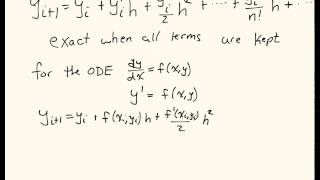 y_{i+1} = y_i + y_i' h + \frac{y_i''}{2} h^2 + ⋯ + \frac{y_i^n}{n!} h^n + ⋯
exact when all terms are kept
for the ODE \frac{dy}{dx} = f(x,y)
y' = f(x,y)
y_{i+1} = y_i + f(x_i,y_i) h + \frac{f'(x_i,y_i)}{2} h^2